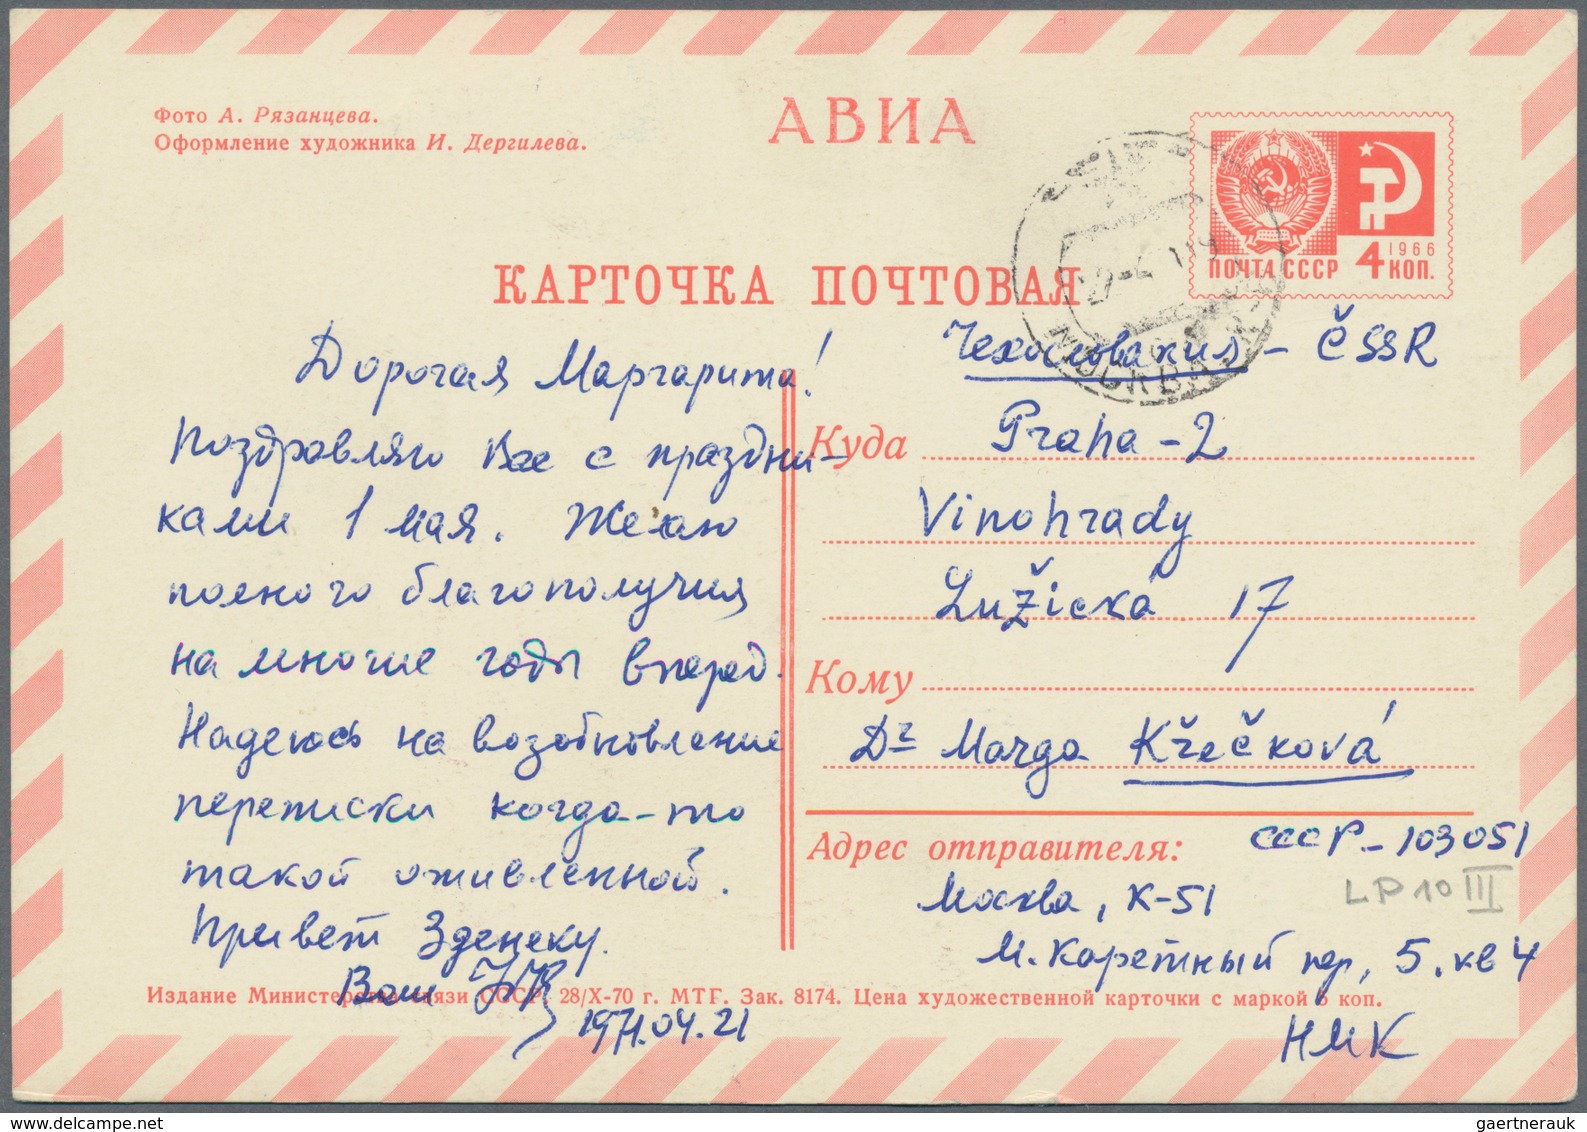 Фото А. Рязанцева.
Оформление художника И. Дергилева.
АВИА
1966
ПОЧТА СССР 4 КОП.
КАРТОЧКА ПОЧТОВАЯ
МОСКВА
Дорогая Маргарита!
Поздравляю Вас с праздни-
ками 1 мая. Желаю
полного благополучия
на многие годы вперед.
Надеюсь на возобновление
переписки когда-то
такой оживленной.
Привет Зденеку.
Ваш
1971.04.21
Чехословакия - ČSSR
Куда Praha-2
Vinohrady
Lužická 17
Кому
Dr Marga Křečková
Адрес отправителя: СССР-103051
Москва, К-51
LP 10 III
М. Каретный пер, 5. кв 4
НМК
Издание Министерства связи СССР. 28/X-70 г. МТГ. Зак. 8174. Цена художественной карточки с маркой 6 коп.
gaertnerauk